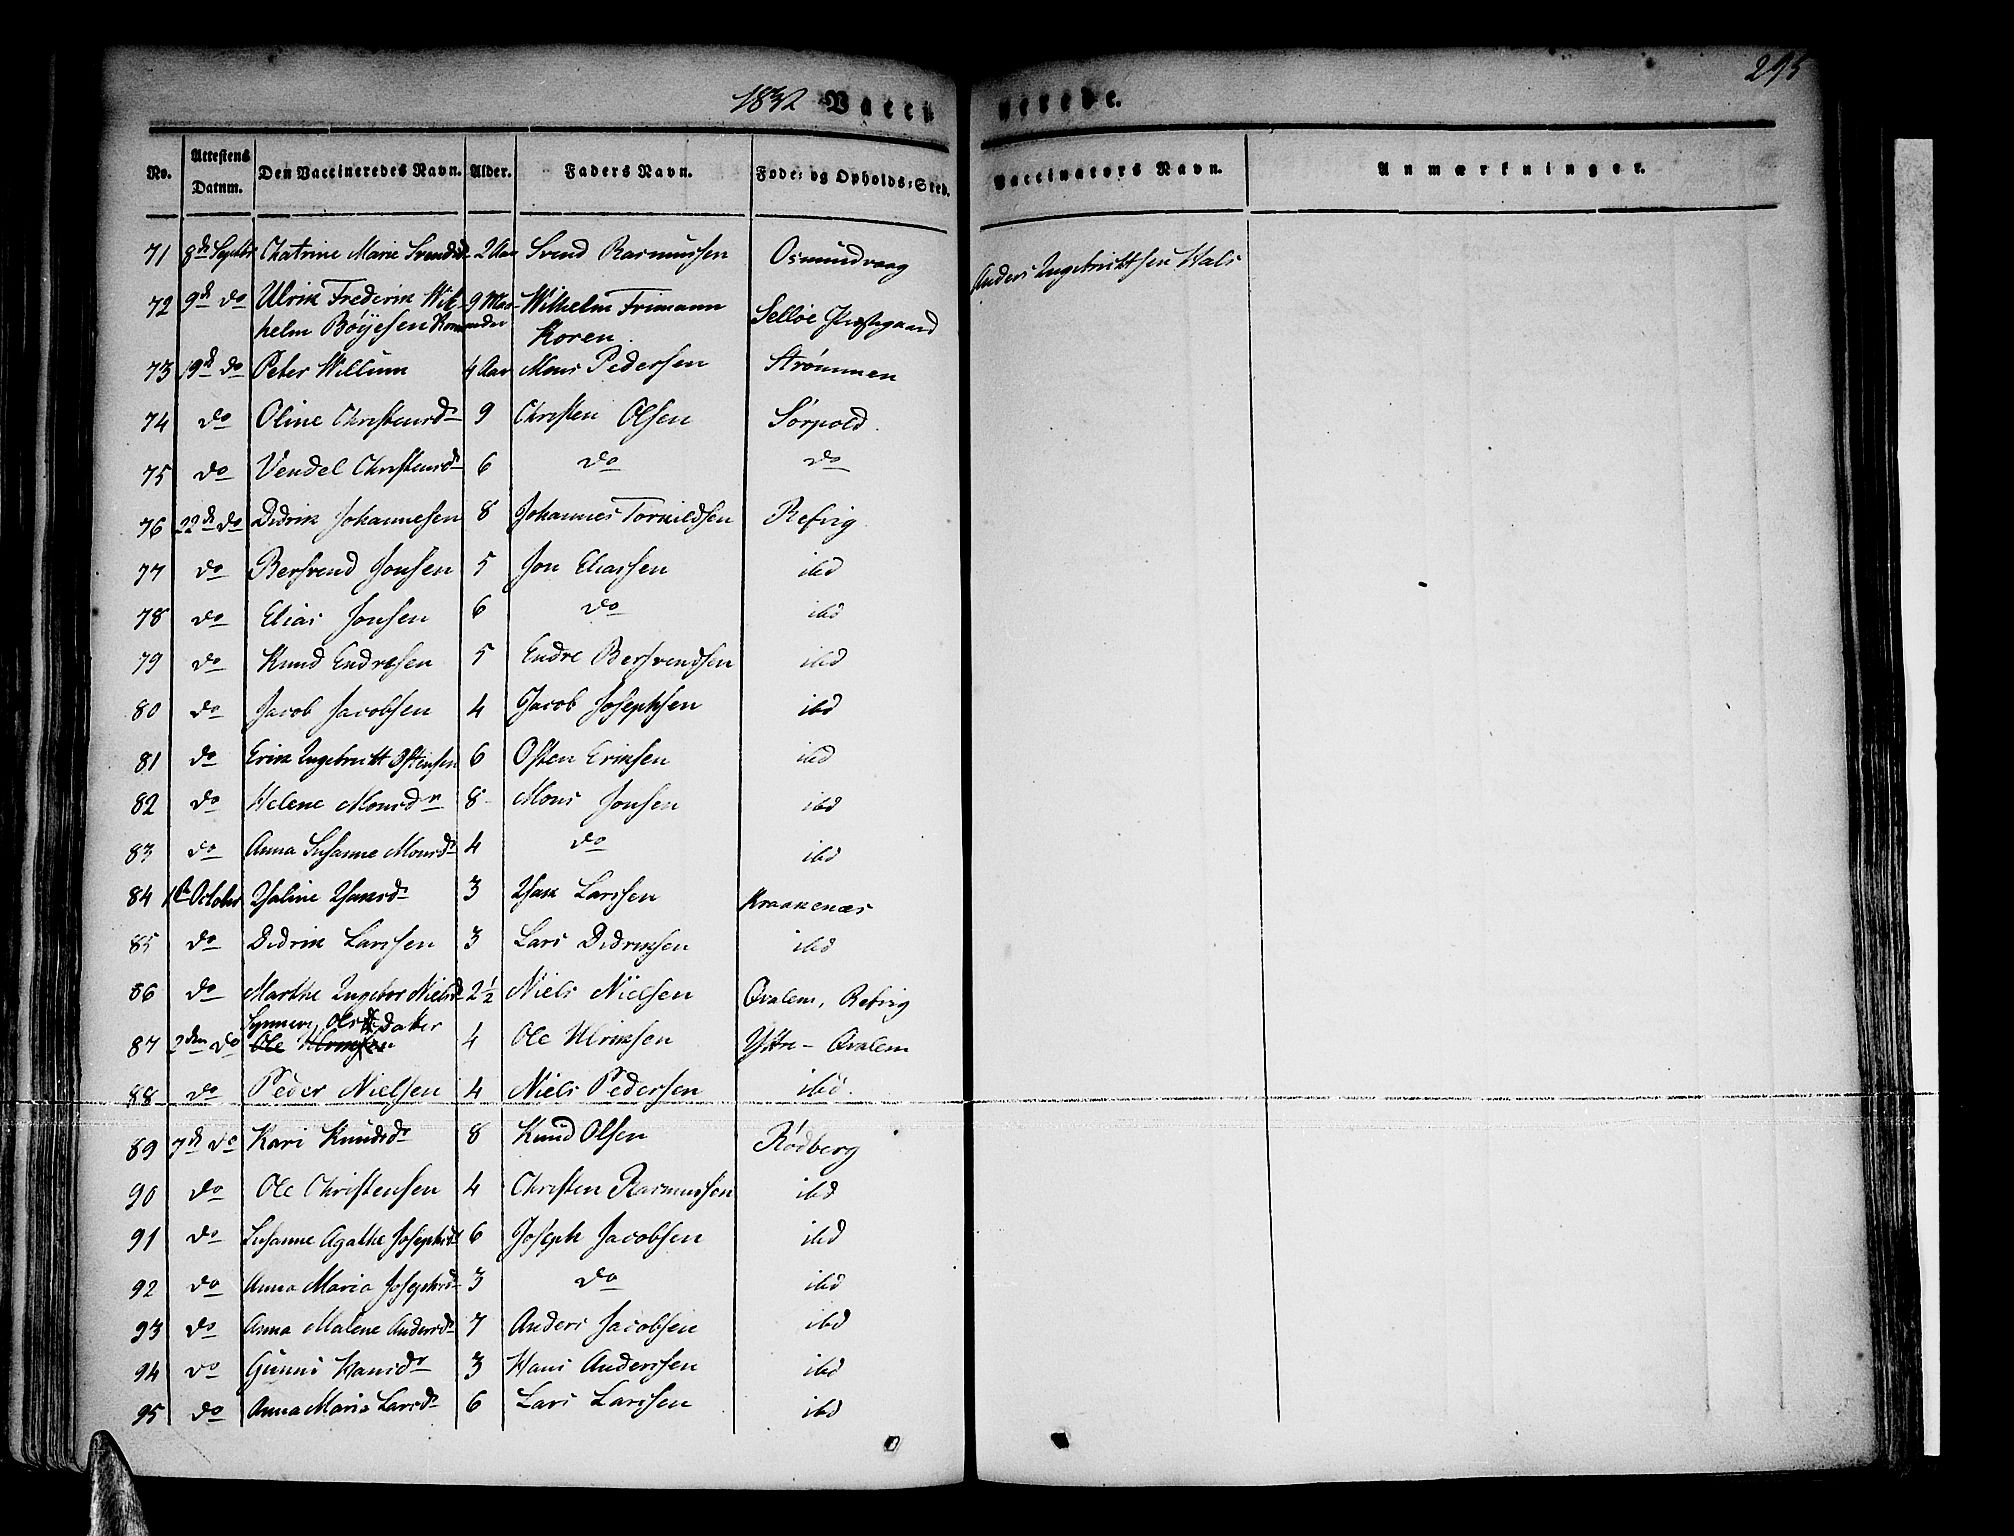 295
1832 Vaccinerede.
No. Attestens Datum. Den Vaccineredes Navn. Alder. Faders Navn. Føde- og Opholds-Sted. Vaccinators Navn. Anmærkninger.
71 8de Septbr Chatrine Marie Svendsd 2 Aar Svend Rasmussen Osmundvaag Anders Ingebrittsen Hals
72 9de do Ulrik Frederik Wil- 9 Maa- Wilhelm Frimann Selløe Præstegaard
helm Böÿesen Koren neder Koren.
73 19de do Peter Willum 4 Aar Mons Pedersen Strömmen
74 do Oline Christensdr 9 Christen Olsen Sörpold
75 do Vendel Christensdr 6 do do
76 22de do Didrik Johannesen 8 Johannes Torkildsen Refvig
77 do Bersvend Jonsen 5 Jon Eliassen ibd
78 do Elias Jonsen 6 do ibd
79 do Knud Endresen 5 Endre Bersvendsen ibd
80 do Jacob Jacobsen 4 Jacob Josephsen ibd
81 do Erik Ingebritt Ostensen 6 Osten Eriksen ibd
82 do Helene Monsdr 8 Mons Jonsen ibd
83 do Anna Susanne Monsdr 4 do ibd
84 1ste October Isaline Isaksdr 3 Isak Larssen Kraakenæs
85 do Didrik Larssen 3 Lars Didriksen ibd
86 do Marthe Ingebor Nielsd 2½ Niels Nielsen Qvalem, Refvig
Synneve Ols datter
87 2den do Ole Ulriksen 4 Ole Ulriksen Ytre-Qvalem
88 do Peder Nielsen 4 Niels Pedersen ibd.
89 7de do Kari Knudsdr 8 Knud Olsen Rödberg
90 do Ole Christensen 4 Christen Rasmussen ibd
91 do Susanne Agathe Josephsd 6 Joseph Jacobsen ibd
92 do Anna Maria Josephsd 3 do ibd
93 do Anna Malene Andersdr 7 Anders Jacobsen ibd
94 do Gunni Hansdr 3 Hans Anderssen ibd
95 do Anna Maria Larsdr 6 Lars Larssen ibd